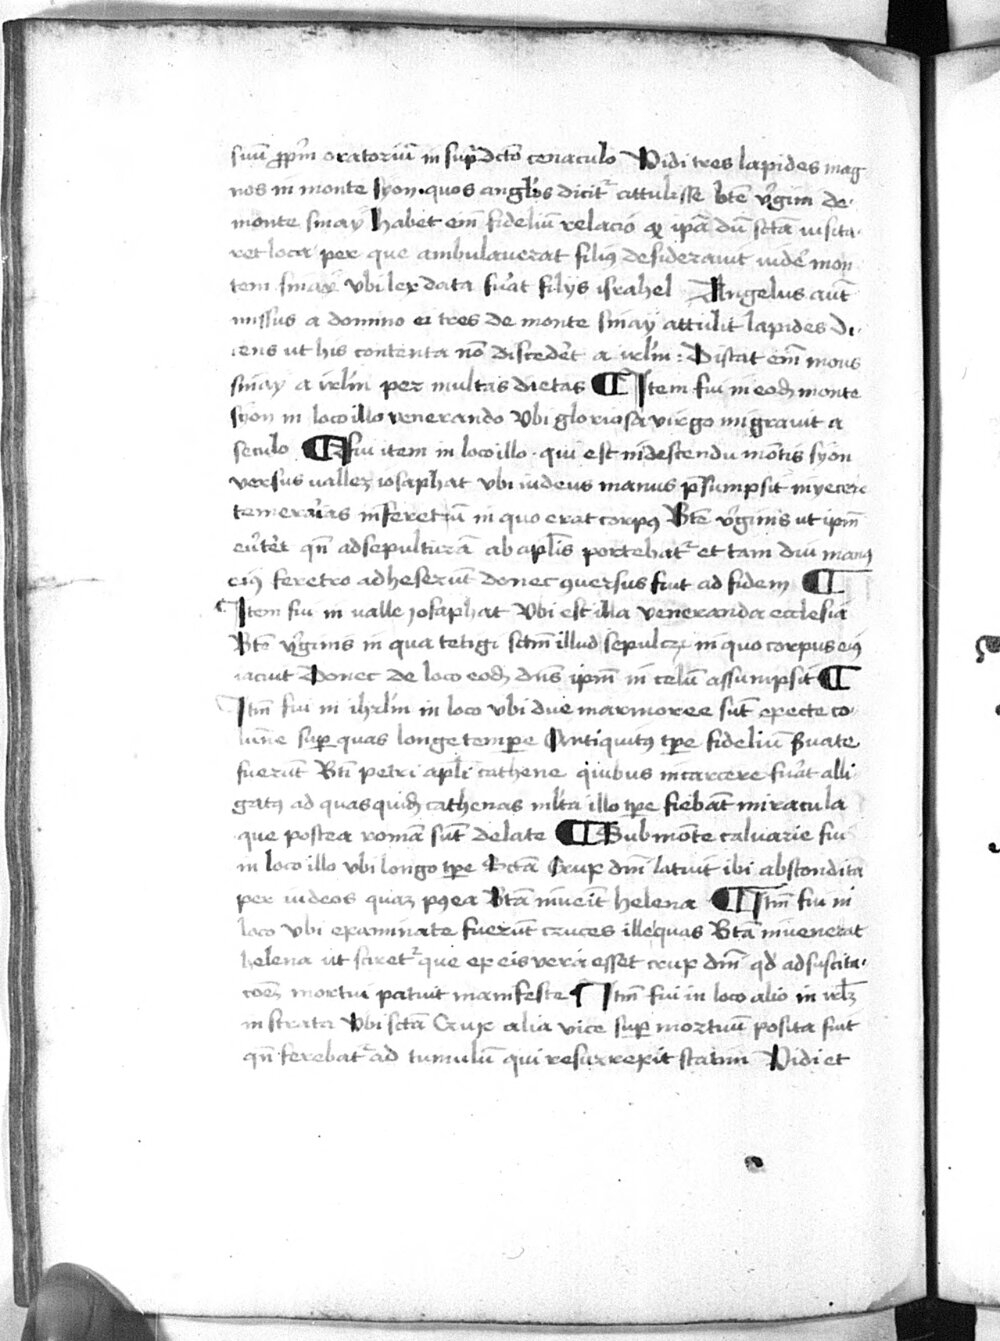 suū ꝓpͥm oratoriū in sup̄dcto cenaculo Vidi tres lapides mag
nos in monte syon quos angl̄os dicit᷑ attulisse bt̄e v̓gini de
monte sinay habet em̄ fideliū relacio ꝙ ip̄a dū sct̄a visita
ret loca per que ambulauerat filiꝰ desiderauit vider̄ mon
tem sinay vbi lex data fu̓at filys israhel Angelus aūt
missus a domino ei tres de monte sinay attulit lapides di
cens ut his contenta nō disceder̄t a irl̄m : Distat em̄ mons
sinay a irl̄m per multas dietas ¶ Item fui in eod̄ monte
syon in loco illo venerando vbi gloriosa virgo migrauit a
seculo ¶ fui item in loco illo qui est in descendu mōtis syon
versus vallez iosaphat vbi iudeus manus p̄sumpsit inyecere
temerarias in feretrū in quo erat corpꝰ Bt̄e v̓ginis ut ip̄m
eu̓ter̄t qn̄ ad sepulturā ab apl̄is portebat᷑ et tam diu manꝰ
eiꝰ feretro adheserūt donec ꝯuersus fiūt ad fidem ¶
Item fui in valle josaphat vbi est illa veneranda ecclesia
Bt̄e v̓ginis in qua tetigi sct̄m illud sepulcꝝ in quo corpus eiꝰ
iacuit Donec de loco eod̄ dn̄s ip̄m in celū assumpsit ¶
Itm̄ fui in ihrl̄m in loco vbi due marmoree sūt erecte co
lūne sup̱ quas longe tempe Antiquitꝰ tp̱e fideliū suate
fuerūt Bt̄i petri apl̄i cathene quibus in carcere fu̓at alli
gatꝰ ad quas quid̄ cathenas ml̄ta illo tp̱e fiebāt miracula
que postea romā sūt delate ¶ Sub mōte caluarie fui
in loco illo vbi longo tp̱e sct̄a Crux dn̄i latuit ibi abscondita
per iudeos quaz pꝰea Bt̄a inuēit helena ¶ Itm̄ fui in
loco vbi examinate fuerūt cruces ille quas Bt̄a inuenerat
helena ut sciret᷑ que ex eis vera esset crux dn̄i qd̄ ad suscita
cōez mortui patuit manifeste ¶ Itm̄ fui in loco alio in irl̄z
in strata vbi sct̄a Crux alia vice sup̱ mortuū posita fiūt
qn̄ ferebat᷑ ad tumulū qui resurrexit statim Vidi et